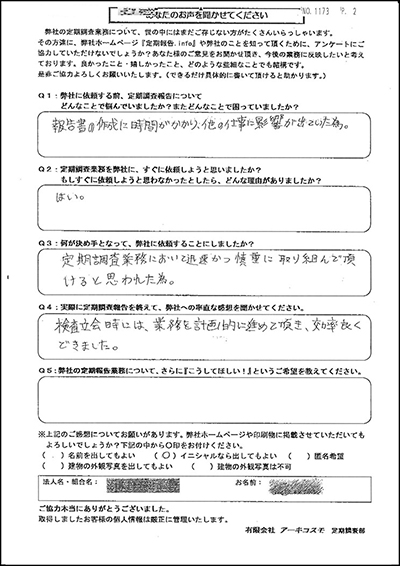 あなたのお声を聞かせてください
NO.1173 P. 2
弊社の定期調査業務について、世の中にはまだご存じない方がたくさんいらっしゃいます。
その方達に、弊社ホームページ『定期報告.info』や弊社のことを知って頂くために、アンケートにご
協力していただけないでしょうか？あなた様のご意見をお聞かせ頂き、今後の業務に反映したいと考え
ております。良かったこと・嬉しかったこと、どのような些細なことでも結構です。
是非ご協力よろしくお願いいたします。（できるだけ具体的に書いて頂けると助かります。）
Q１：弊社に依頼する前、定期調査報告について
どんなことで悩んでいましたか？またどんなことで困っていましたか？
報告書の作成に時間がかかり、他の仕事に影響が出ていた為。
Q２：定期調査業務を弊社に、すぐに依頼しようと思いましたか？
もしすぐに依頼しようと思わなかったとしたら、どんな理由がありましたか？
はい。
Q３：何が決め手となって、弊社に依頼することにしましたか？
定期調査業務において迅速かつ慎重に取り組んで頂
けると思われた為。
Q４：実際に定期調査報告を終えて、弊社への率直な感想を聞かせてください。
検査立会時には、業務を計画的に進めて頂き、効率良く
できました。
Q５：弊社の定期報告業務について、さらに『こうしてほしい！』というご希望を教えてください。
※上記のご感想についてお願いがあります。弊社ホームページや印刷物に掲載させていただいても
よろしいでしょうか？下記の中から〇印をお付けください。
（　）名前を出してもよい　（〇）イニシャルなら出してもよい　（　）匿名希望
（　）建物の外観写真を出してもよい　（　）建物の外観写真は不可
法人名・組合名：
お名前：
ご協力本当にありがとうございました。
取得しましたお客様の個人情報は厳正に管理いたします。
有限会社 アーキコスモ 定期調査部